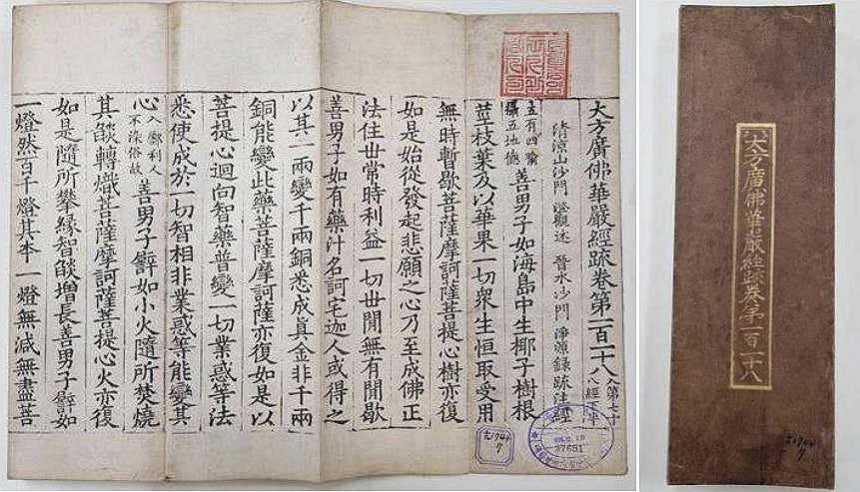 大方廣佛華嚴經䟽卷第一百二十八 入第七十八經下半
清涼山沙門 澄觀述 晉水沙門 淨源錄䟽注經
五有四喻攝五地德 善男子如海島中生椰子樹根
莖枝葉及以華果一切衆生恒取受用
無時暫歇菩薩摩訶薩菩提心樹亦復
如是始從發起悲願之心乃至成佛正
法住世常時利益一切世閒無有閒歇
善男子如有藥汁名訶宅迦人或得之
以其一兩變千兩銅悉成眞金非千兩
銅能變此藥菩薩摩訶薩亦復如是以
菩提心迴向智藥普變一切業惑等法
悉使成於一切智相非業惑等能變其
心 入鄽利人不染俗故 善男子譬如小火隨所焚燒
其燄轉熾菩薩摩訶薩菩提心火亦復
如是隨所攀緣智燄增長善男子譬如
一燈然百千燈其本一燈無減無盡菩
37681
大方廣佛華嚴經䟽卷第一百二十八